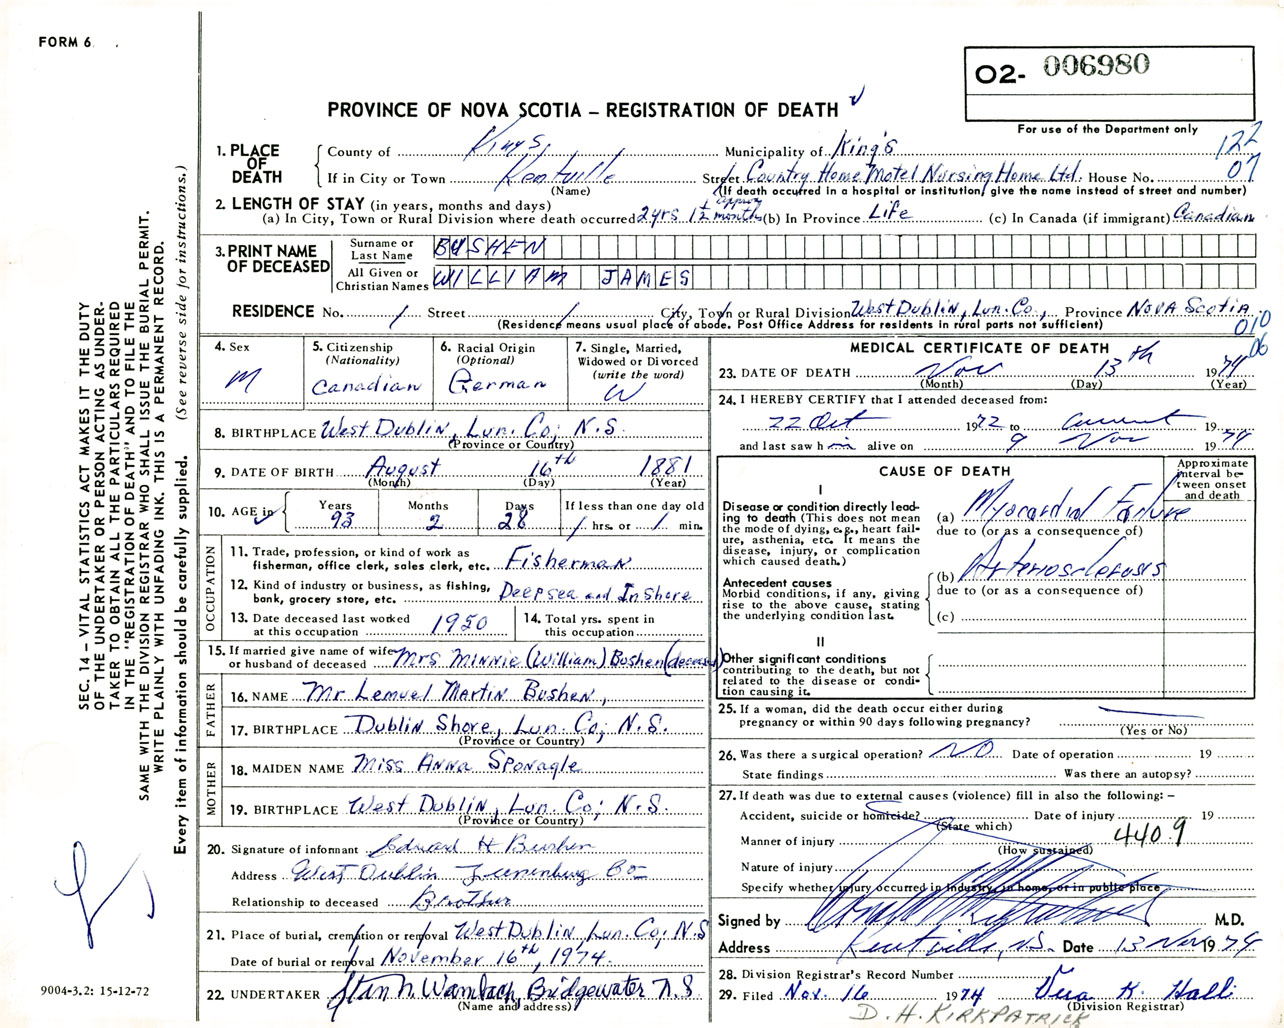 FORM 6
O2- 006980
For use of the Department only
PROVINCE OF NOVA SCOTIA – REGISTRATION OF DEATH
122
07
1. PLACE OF DEATH
County of Kings, Municipality of King's
If in City or Town Kentville Street Country Home Motel Nursing Home Ltd. House No.
(Name) (If death occurred in a hospital or institution, give the name instead of street and number)
2. LENGTH OF STAY (in years, months and days)
(a) In City, Town or Rural Division where death occurred 2 yrs 1½ months approx (b) In Province Life (c) In Canada (if immigrant) Canadian
3. PRINT NAME OF DECEASED
Surname or Last Name BUSHEN
All Given or Christian Names WILLIAM JAMES
RESIDENCE No. / Street / City, Town or Rural Division West Dublin, Lun. Co., Province Nova Scotia.
(Residence means usual place of abode. Post Office Address for residents in rural parts not sufficient)
010
06
4. Sex
M
5. Citizenship
(Nationality)
Canadian
6. Racial Origin
(Optional)
German
7. Single, Married,
Widowed or Divorced
(write the word)
W
8. BIRTHPLACE West Dublin, Lun. Co; N.S.
(Province or Country)
9. DATE OF BIRTH August 16th 1881
(Month) (Day) (Year)
10. AGE in
Years Months Days If less than one day old
93 2 28 / hrs. or / min.
OCCUPATION
11. Trade, profession, or kind of work as
fisherman, office clerk, sales clerk, etc. Fisherman
12. Kind of industry or business, as fishing,
bank, grocery store, etc. Deepsea and Inshore
13. Date deceased last worked
at this occupation 1950
14. Total yrs. spent in
this occupation
15. If married give name of wife
or husband of deceased Mrs Minnie (William) Bushen (deceased)
FATHER
16. NAME Mr Lemuel Martin Bushen,
17. BIRTHPLACE Dublin Shore, Lun. Co; N.S.
(Province or Country)
MOTHER
18. MAIDEN NAME Miss Anna Sponagle
19. BIRTHPLACE West Dublin, Lun. Co; N.S.
(Province or Country)
20. Signature of informant Edward H Bushen
Address West Dublin Lunenburg Co
Relationship to deceased Brother
21. Place of burial, cremation or removal West Dublin, Lun. Co; N.S
Date of burial or removal November 16th, 1974.
22. UNDERTAKER Stan N. Wambach, Bridgewater N.S
(Name and address)
MEDICAL CERTIFICATE OF DEATH
23. DATE OF DEATH Nov 13th 1974
(Month) (Day) (Year)
24. I HEREBY CERTIFY that I attended deceased from:
22 Oct 1972 to current 19
and last saw him alive on 9 Nov 1974
CAUSE OF DEATH
Approximate
interval be-
tween onset
and death
I
Disease or condition directly lead-
ing to death (This does not mean
the mode of dying, e.g., heart fail-
ure, asthenia, etc. It means the
disease, injury, or complication
which caused death.)
(a) Myocardial Failure
due to (or as a consequence of)
Antecedent causes
Morbid conditions, if any, giving
rise to the above cause, stating
the underlying condition last.
(b) Arteriosclerosis
due to (or as a consequence of)
(c)
II
Other significant conditions
contributing to the death, but not
related to the disease or condi-
tion causing it.
25. If a woman, did the death occur either during
pregnancy or within 90 days following pregnancy?
(Yes or No)
26. Was there a surgical operation? NO Date of operation 19
State findings Was there an autopsy?
27. If death was due to external causes (violence) fill in also the following: –
Accident, suicide or homicide? Date of injury 19
(State which)
Manner of injury 440.9
(How sustained)
Nature of injury
Specify whether injury occurred in industry, in home, or in public place
Signed by M.D.
Address Kentville, N.S. Date 13 Nov 1974
28. Division Registrar's Record Number
29. Filed Nov. 16 1974 Vera K. Hall
(Division Registrar)
D. H. KIRKPATRICK
SEC. 14 – VITAL STATISTICS ACT MAKES IT THE DUTY
OF THE UNDERTAKER OR PERSON ACTING AS UNDER-
TAKER TO OBTAIN ALL THE PARTICULARS REQUIRED
IN THE "REGISTRATION OF DEATH" AND TO FILE THE
SAME WITH THE DIVISION REGISTRAR WHO SHALL ISSUE THE BURIAL PERMIT.
WRITE PLAINLY WITH UNFADING INK. THIS IS A PERMANENT RECORD.
Every item of information should be carefully supplied. (See reverse side for instructions.)
9004-3.2: 15-12-72